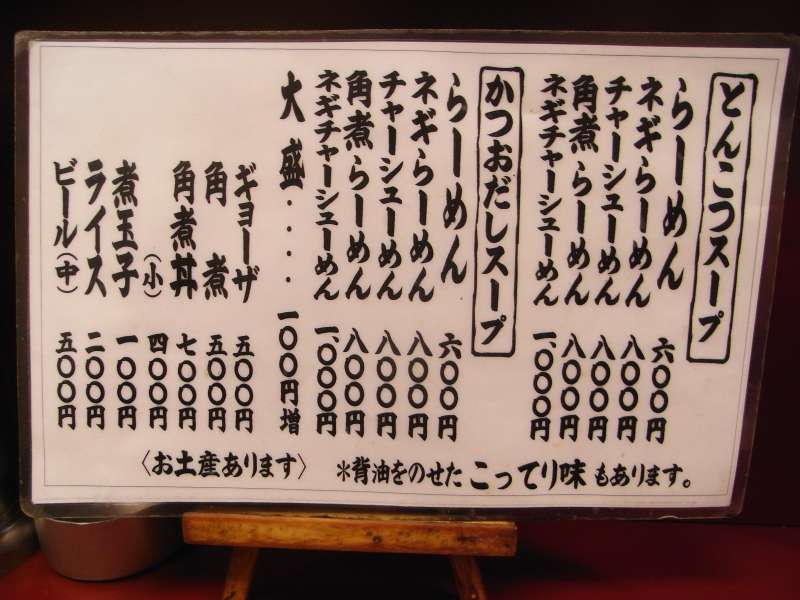 とんこつスープ
らーめん 六〇〇円
ネギらーめん 八〇〇円
チャーシューめん 八〇〇円
角煮らーめん 八〇〇円
ネギチャーシューめん 一、〇〇〇円
かつおだしスープ
らーめん 六〇〇円
ネギらーめん 八〇〇円
チャーシューめん 八〇〇円
角煮らーめん 八〇〇円
ネギチャーシューめん 一、〇〇〇円
大盛・・・・一〇〇円増
ギョーザ 五〇〇円
角煮 五〇〇円
角煮丼 七〇〇円
(小) 四〇〇円
煮玉子 一〇〇円
ライス 二〇〇円
ビール(中) 五〇〇円
*背油をのせたこってり味もあります。
〈お土産あります〉